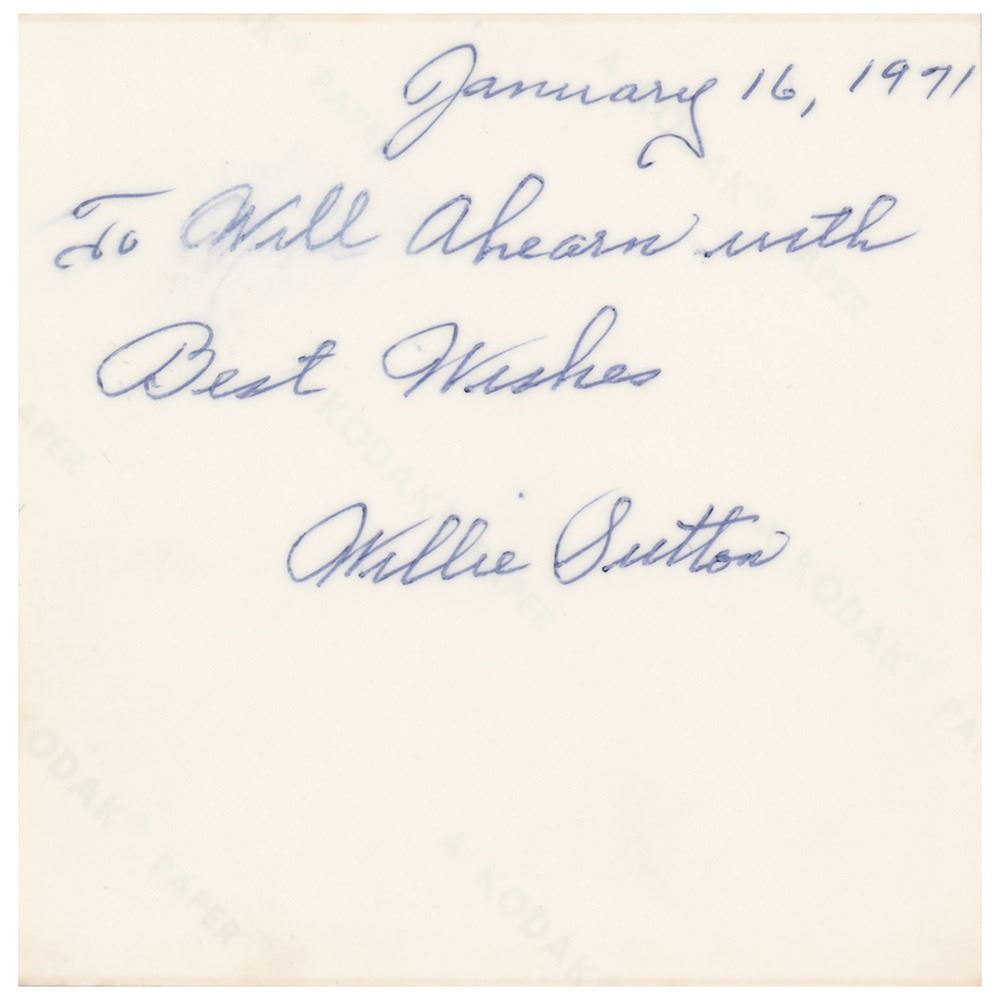 January 16, 1971
To Will Ahearn with
Best Wishes
Willie Sutton
A KODAK® PAPER
KODAK
PAPER
A KODAK
PAPER
KODAK® PA
KODAK®
PAPER
A KODAK